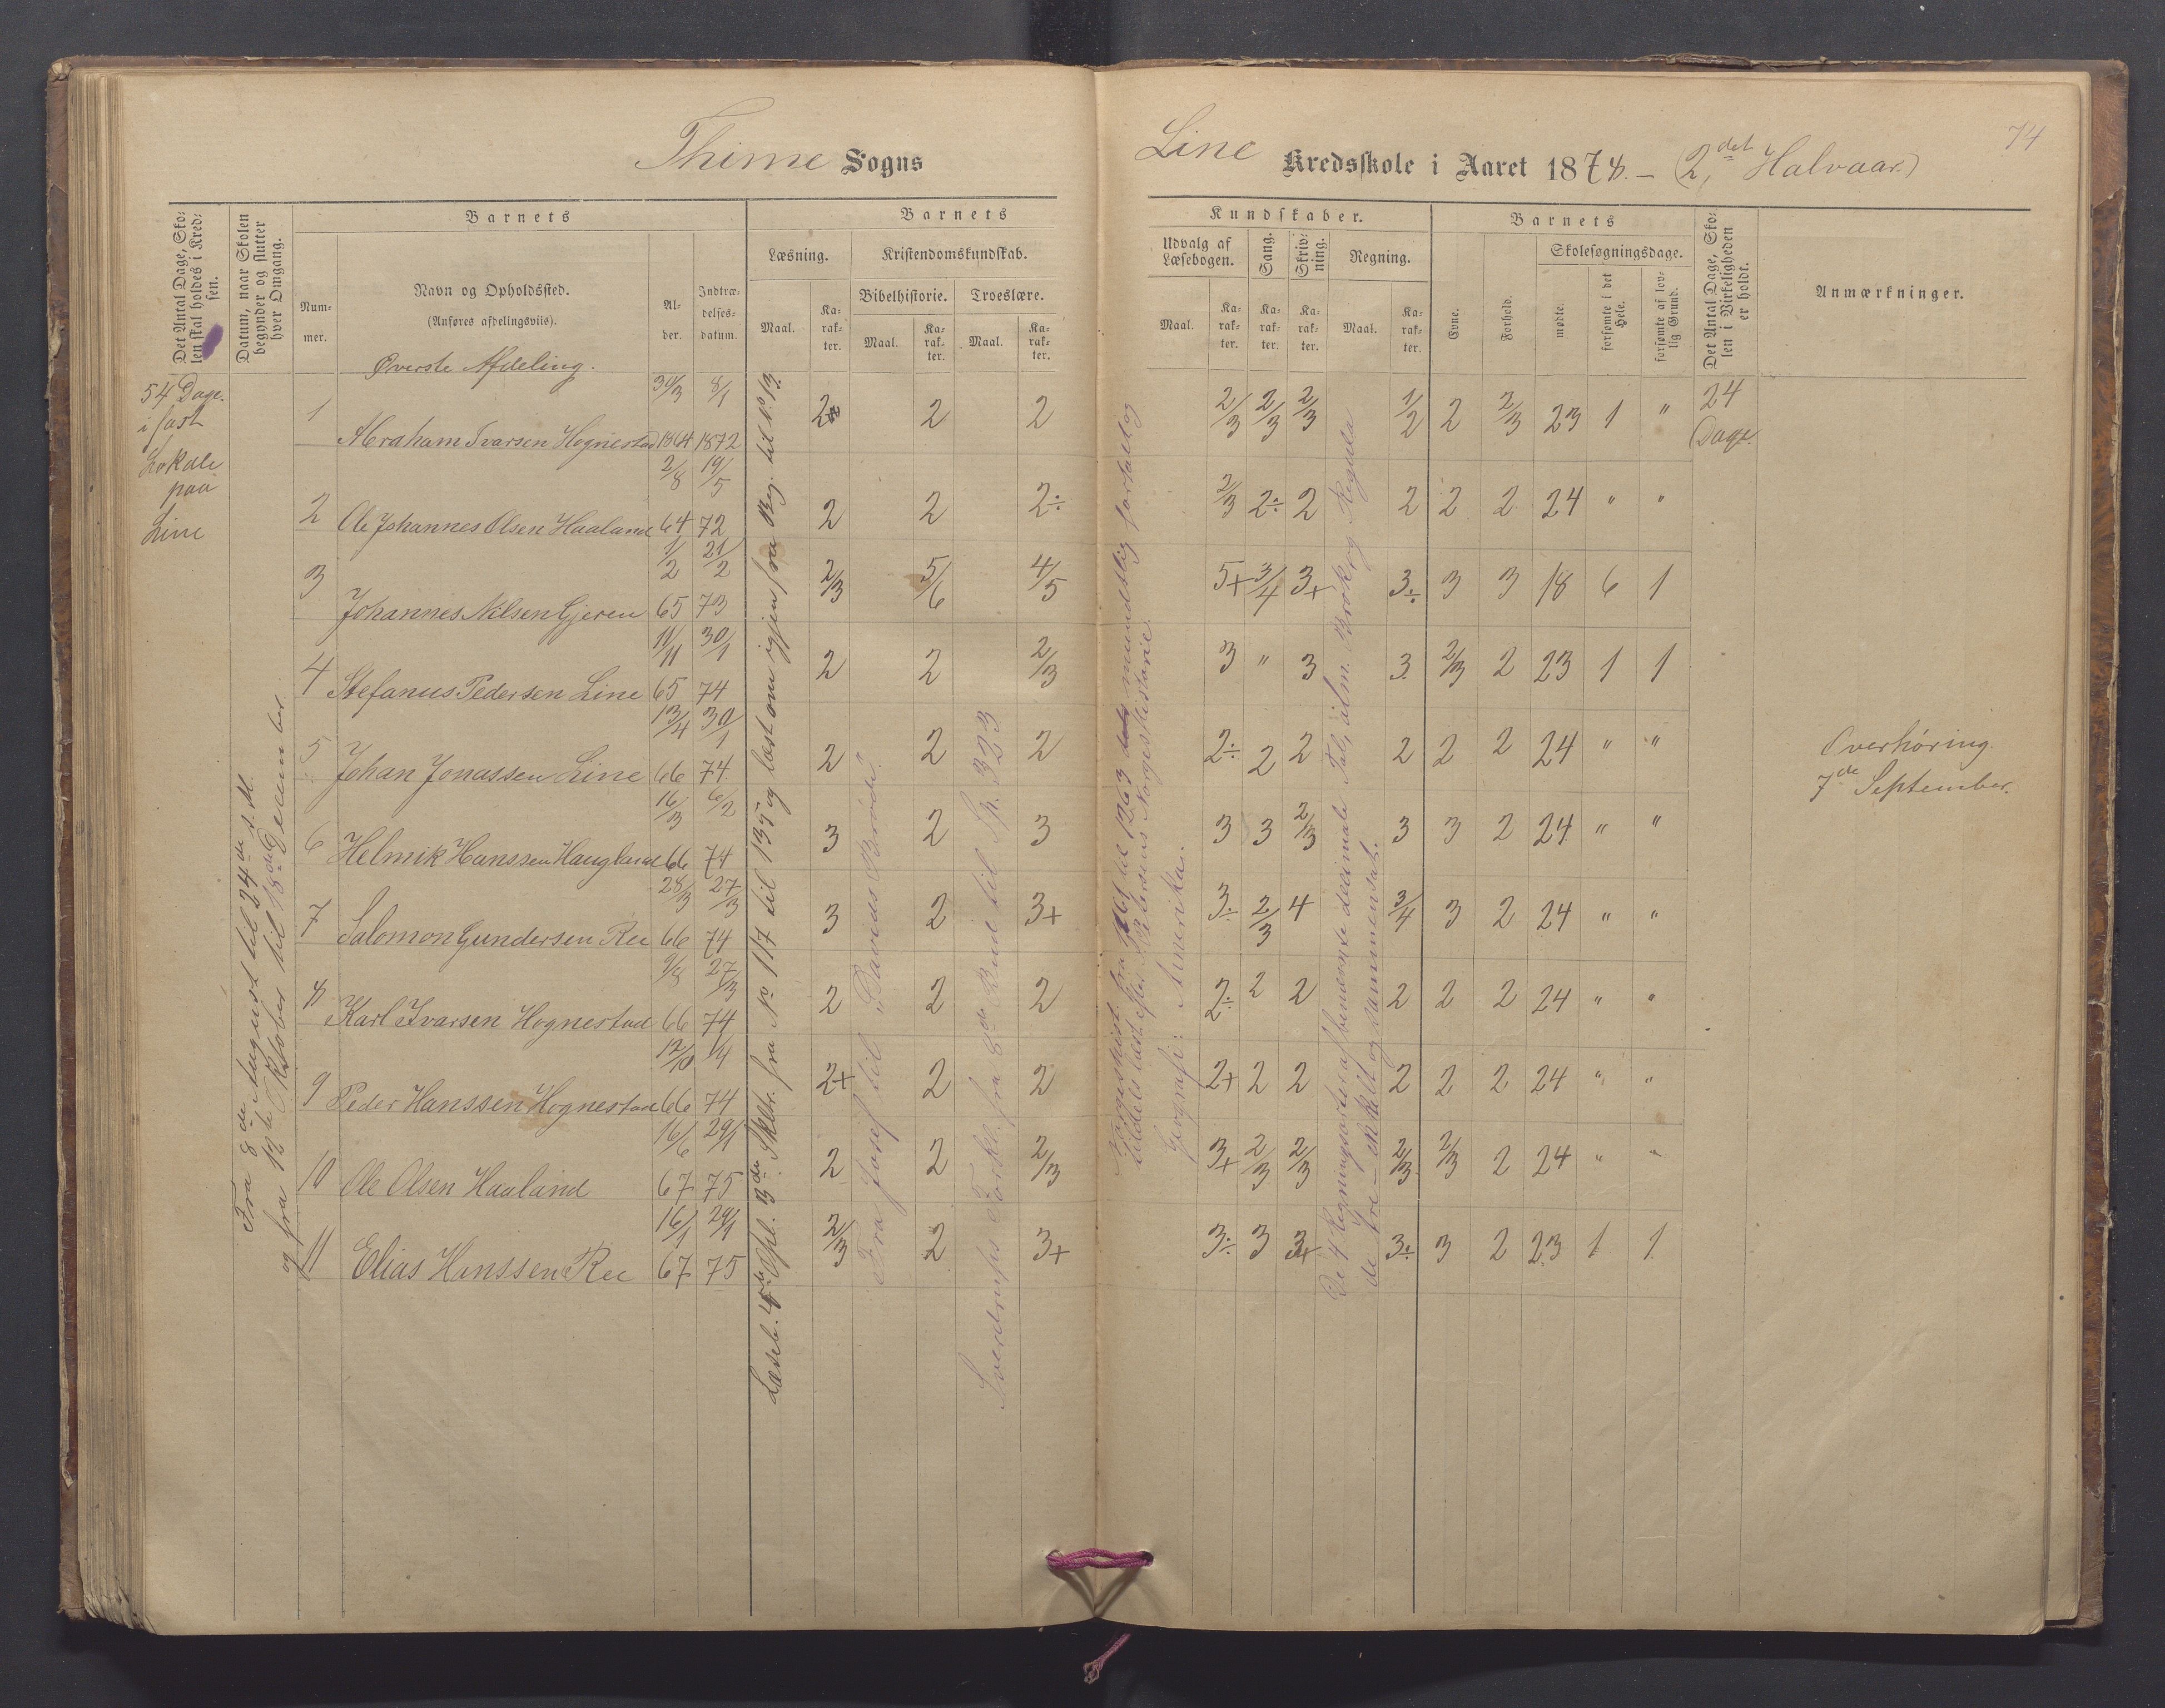 Thime Sogns
Line Kredsskole i Aaret 1878. – (2det Halvaar)
74
Det Antal Dage, Skolen skal holdes i Kredsen.
Datum, naar Skolen begynder og slutter hver Omgang.
Barnets
Nummer.
Navn og Opholdssted.
(Anføres afdelingsviis).
Alder.
Indtrædelsesdatum.
Barnets
Læsning.
Kristendomskundskab.
Bibelhistorie.
Troeslære.
Maal.
Karakter.
Maal.
Karakter.
Maal.
Karakter.
Kundskaber.
Udvalg af Læsebogen.
Sang.
Skrivning.
Regning.
Maal.
Karakter.
Karakter.
Karakter.
Maal.
Karakter.
Barnets
Evne.
Forhold.
Skolesøgningsdage.
mødte.
forsømte i det Hele.
forsømte af lovlig Grund.
Det Antal Dage, Skolen i Virkeligheden er holdt.
Anmærkninger.
Øverste Afdeling.
54 Dage.
i fast
Lokale
paa
Line
Fra 8de August til 24de s. M.
og fra 12te Oktober til 18de December.
1 Abraham Ivarsen Hognestad 30/3 1864 8/1 1872 2 2 2 2/3 2/3 2/3 1/2 2 2/3 23 1 " 24 Dage.
2 Ole Johannes Olsen Haaland 2/8 64 19/5 72 2 2 2÷ 2/3 2÷ 2 2 2 2 24 " "
3 Johannes Nilsen Gjeren 1/2 65 21/2 73 2/3 5/6 4/5 5+ 3/4 3+ 3÷ 3 3 18 6 1
4 Stefanus Pedersen Line 11/11 65 30/1 74 2 2 2/3 3 " 3 3 2/3 2 23 1 1
5 Johan Jonassen Line 13/4 66 30/1 74 2 2 2 2÷ 2 2 2 2 2 24 " "
6 Helmik Hanssen Haugland 16/3 66 6/2 74 3 2 3 3 3 2/3 3 3 2 24 " "
7 Salomon Gundersen Ree 28/3 66 27/3 74 3 2 3+ 3÷ 2/3 4 3/4 3 2 24 " "
8 Karl Ivarsen Hognestad 9/8 66 27/3 74 2 2 2 2÷ 2 2 2 2 2 24 " "
9 Peder Hanssen Hognestad 12/10 66 1/4 74 2+ 2 2 2+ 2 2 2 2 2 24 " "
10 Ole Olsen Haaland 16/6 67 29/1 75 2 2 2/3 3+ 2/3 2/3 2/3 2/3 2 24 " "
11 Elias Hanssen Ree 16/1 67 29/1 75 2/3 2 3+ 3÷ 3 3+ 3÷ 3 2 23 1 1
Læseb. 3de Skltr. fra No 117 til 135 og læst om igjen fra Beg. til No 13.
Fra Josef til "Davids Brøde".
Sverdrups Forkl. fra 8de Bud til Sp. 323
Norgeshist. fra til 1263 mundtlig fortalt og
tildels læst efter Petersens Norgeshistorie.
Geografi: Amerika.
De 4 Regningsarter af benævnte decimale Tal, alm. Brøk og Regula
de tre – enkelt og sammensat.
Overhøring
7de September.